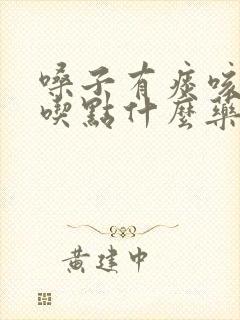 嗓子有痰咳
喫點什麼藥
黃建中